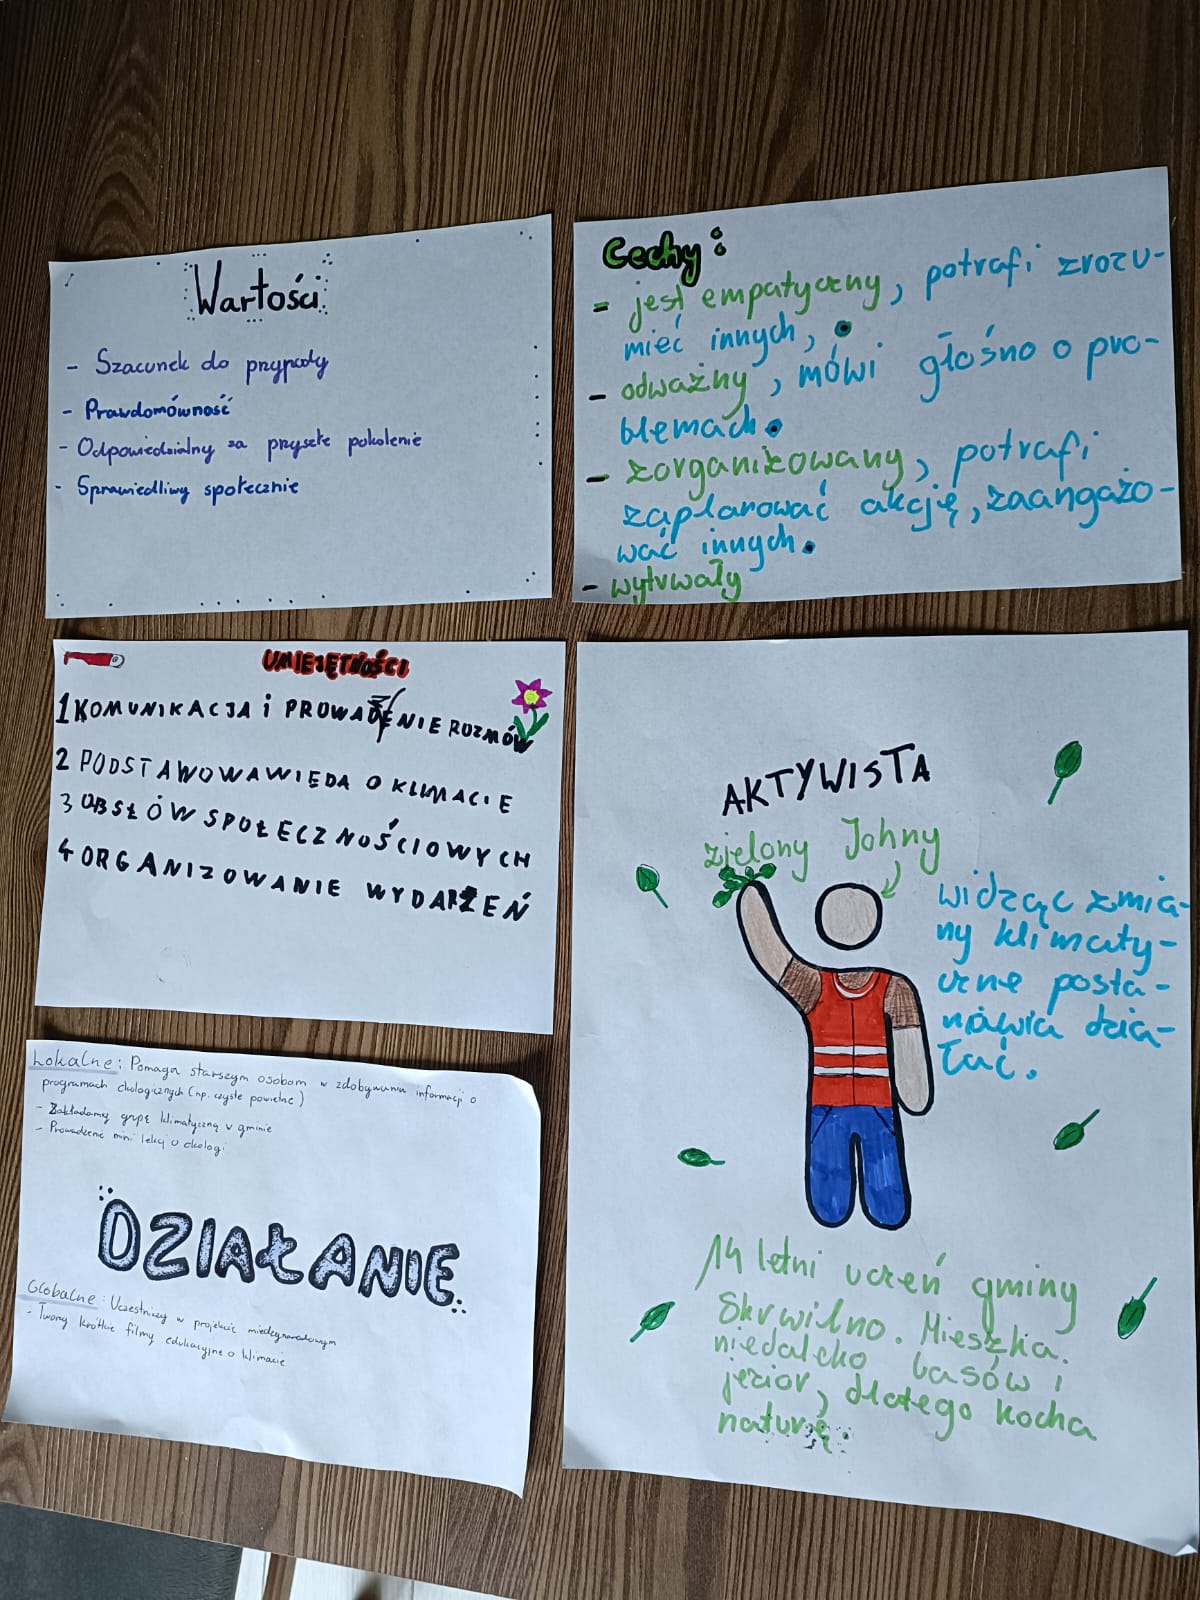 Wartości
- Szacunek do przyrody
- Prawdomówność
- Odpowiedzialny za przyszłe pokolenie
- Sprawiedliwy społecznie
Cechy:
- jest empatyczny, potrafi zrozu-
mieć innych,
- odważny, mówi głośno o pro-
blemach.
- zorganizowany, potrafi
zaplanować akcję, zaangażo-
wać innych.
- wytrwały
UMIEJĘTNOŚCI
1 KOMUNIKACJA i PROWADZENIE ROZMÓW
2 PODSTAWOWA WIEDA O KLIMACIE
3 OBSŁÓW SPOŁECZNOŚCIOWYCH
4 ORGANIZOWANIE WYDARZEŃ
Lokalne: Pomaga starszym osobom w zdobywaniu informacji o
programach ekologicznych (np. czyste powietrze)
- Zakładamy grupę klimatyczną w gminie
- Prowadzenie mini lekcj o ekologi
DZIAŁANIE
Globalne: Uczestniczy w projekcie międzynarodowym
- Tworzy krótkie filmy edukacyjne o klimacie
AKTYWISTA
zielony Johny
widząc zmia-
ny klimaty-
czne posta-
nawia dzia-
łać.
14 letni uczeń gminy
Skrwilno. Mieszka.
niedaleko lasów i
jezior, dlatego kocha
naturę.